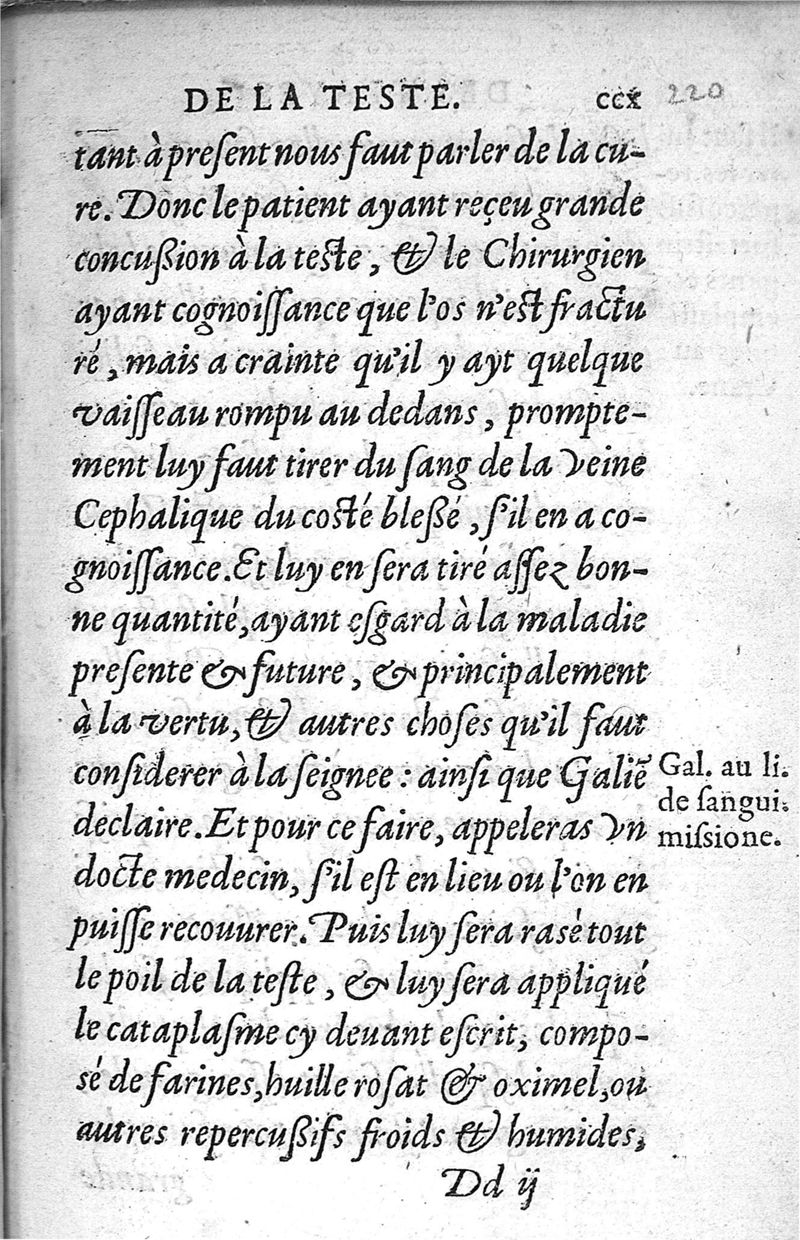 DE LA TESTE. ccx 220
tant à preſent nous faut parler de la cu-
re. Donc le patient ayant reçeu grande
concuſſion à la teſte, & le Chirurgien
ayant cognoiſſance que l'os n'eſt fractu
ré, mais a crainte qu'il y ayt quelque
vaiſſeau rompu au dedans, prompte-
ment luy faut tirer du ſang de la veine
Cephalique du coſté bleßé, ſ'il en a co-
gnoiſſance. Et luy en ſera tiré aſſez bon-
ne quantité, ayant eſgard à la maladie
preſente & future, & principalement
à la vertu, & autres choſes qu'il faut
conſiderer à la ſeignee: ainſi que Galiẽ
declaire. Et pour ce faire, appeleras vn
docte medecin, ſ'il eſt en lieu ou l'on en
puiſſe recouurer. Puis luy ſera rasè tout
le poil de la teſte, & luy ſera appliqué
le cataplaſme cy deuant eſcrit, compo-
sé de farines, huille roſat & oximel, ou
autres repercußifs froids & humides,
Dd ij
Gal. au li.
de ſangui.
miſsione.